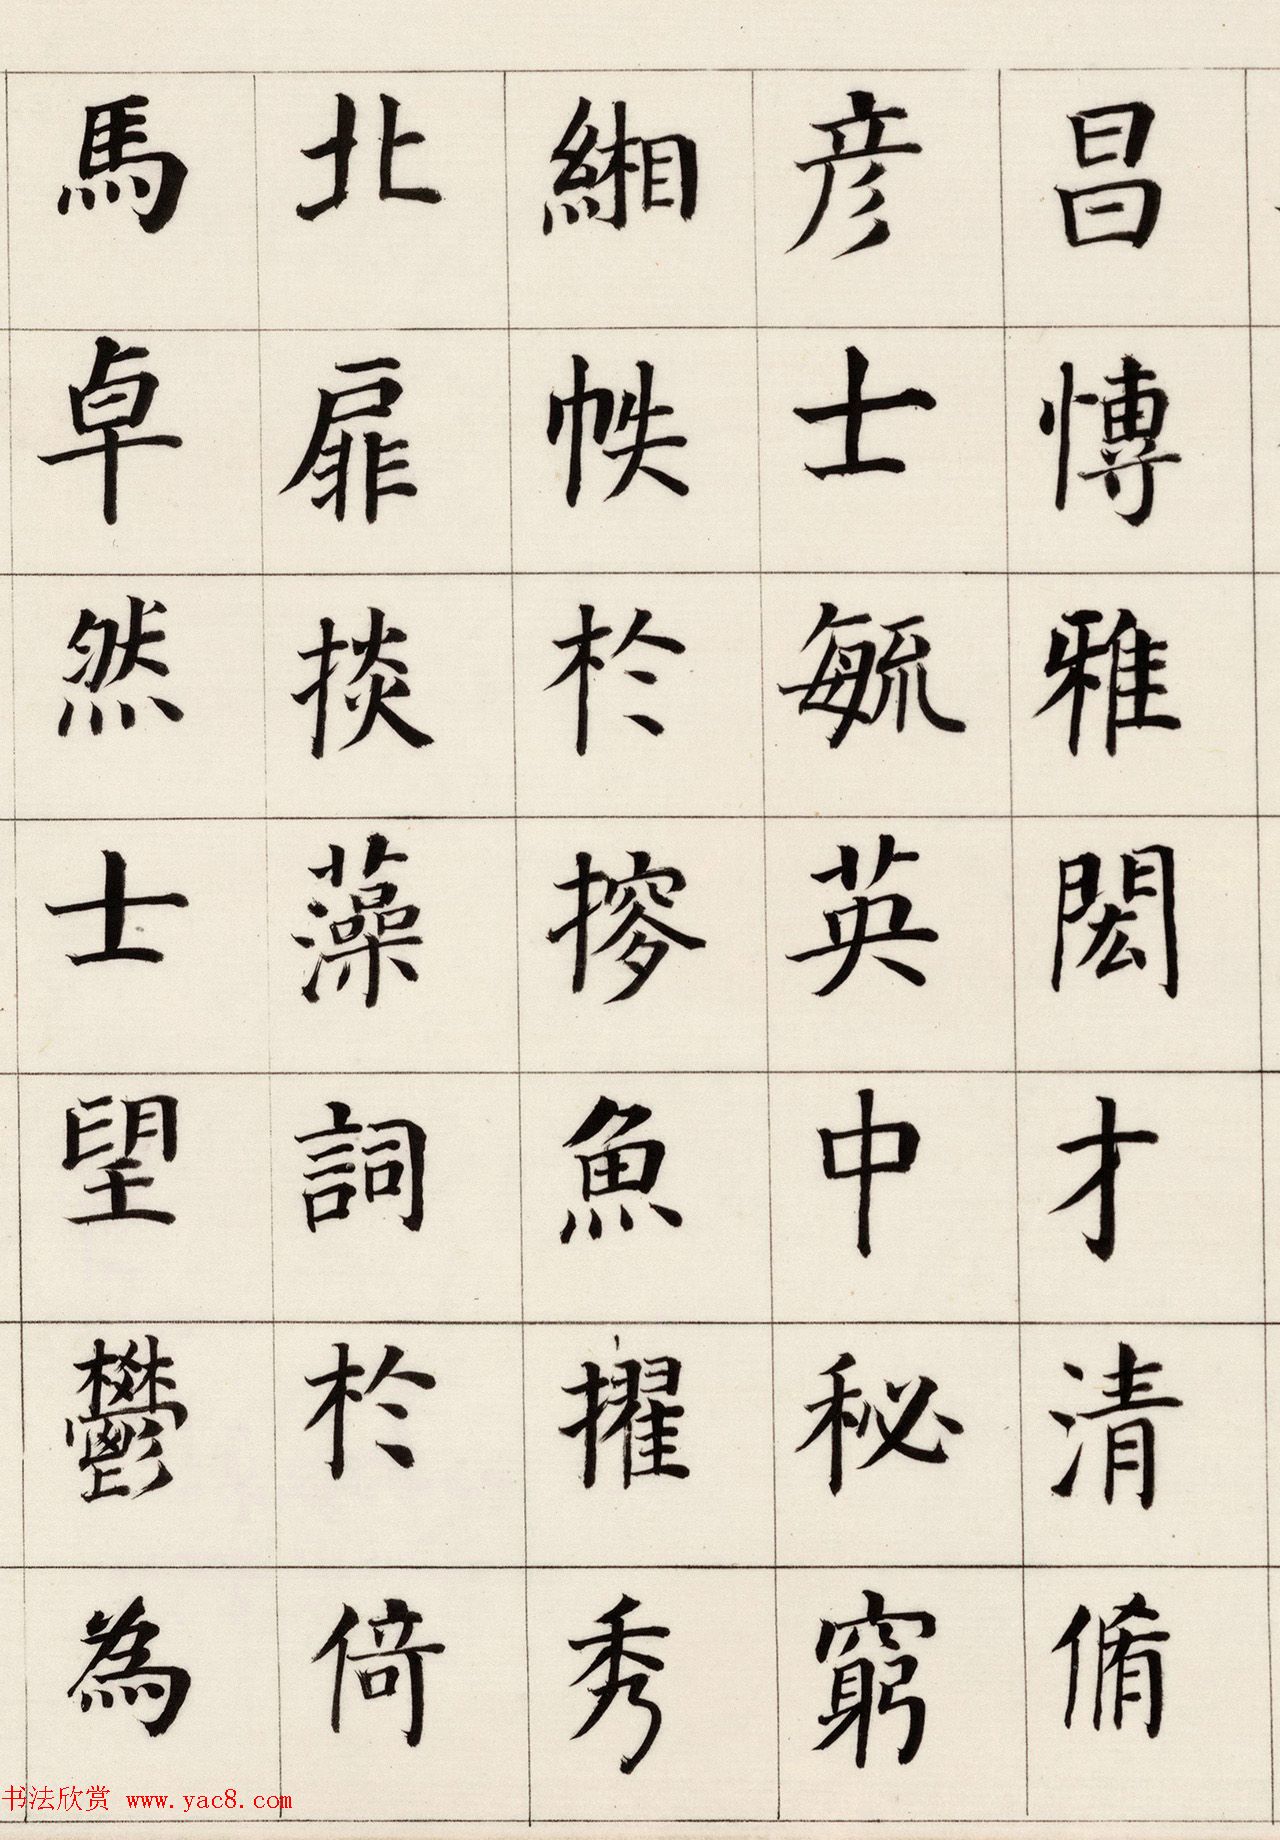 昌博雅閎才清脩
彥士毓英中秘窮
緗帙於摻魚擢秀
北扉掞藻詞於倚
馬卓然士望鬱為
书法欣赏 www.yac8.com